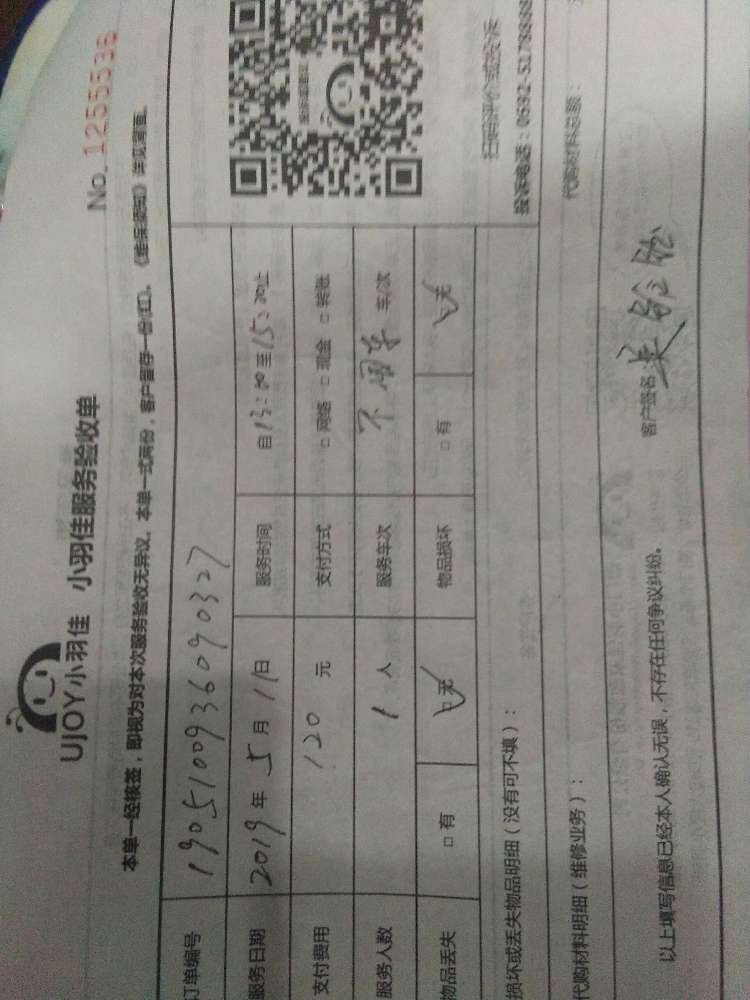 No. 1255536
UJOY小羽佳 小羽佳服务验收单
本单一经核签，即视为对本次服务验收无异议。本单一式两份，客户留存一份(红)。《维保须知》详见背面。
订单编号 1905100936090327
服务日期 2019 年 5 月 11 日 服务时间 自 13:00 至 15:00 止
支付费用 120 元 支付方式 □ 网络 □ 现金 □ 转账
服务人数 1 人 服务车次 不用车 车/次
物品丢失 □ 有 □ 无 物品损坏 □ 有 □ 无
扫码评价或投诉
投诉电话：0592-5178888
损坏或丢失物品明细（没有可不填）：
代购材料明细（维修业务）： 代购材料总额：
以上填写信息已经本人确认无误，不存在任何争议纠纷。 客户签名